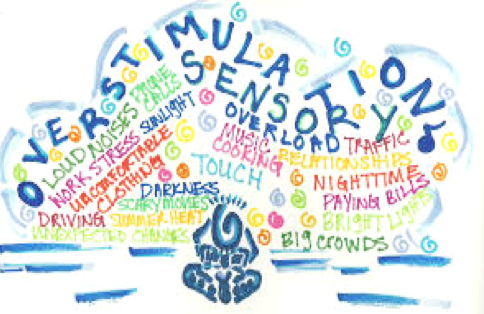 OVERSTIMULATION
SENSORY
OVERLOAD
PHONE
CALLS
LOUD NOISES
SUNLIGHT
WORK-STRESS
UNCOMFORTABLE
CLOTHING
MUSIC
COOKING
TRAFFIC
RELATIONSHIPS
TOUCH
NIGHTTIME
DARKNESS
PAYING BILLS
SCARY MOVIES
DRIVING
SUMMER HEAT
BRIGHT LIGHTS
UNEXPECTED CHANGES
BIG CROWDS